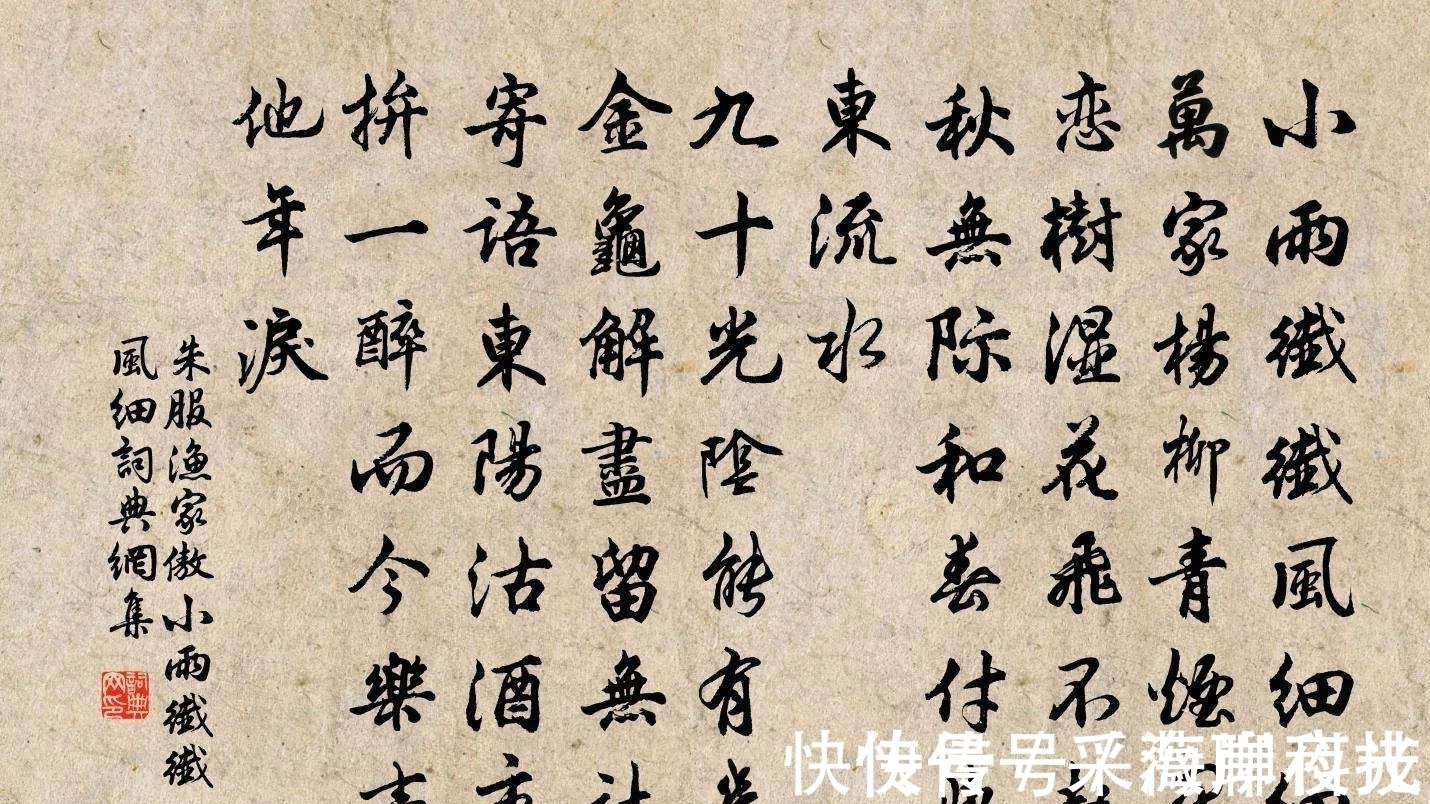 小雨纖纖風細
萬家楊柳青煙
恋樹湿花飛不
秋無际和春付
東流水
九十光陰能有
金龜解盡留無
寄語東陽沽酒
拚一醉而今樂
他年淚
朱服漁家傲小雨纖纖
風細詞典網集